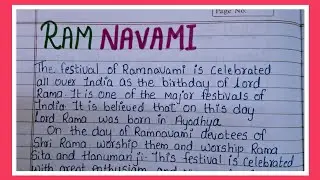 Page No.
RAM NAVAMI
The festival of Ramnavami is celebrated
all over India as the birthday of lord
Rama It is one of the major festivals of
India It is believed that on this day
Lord Rama was born in Ayodhya
On the day of Ramnavami devotees of
Shri Rama worship them and worship Rama
Sita and Hanuman ji. This festival is celebrated
with great enthusiasm and